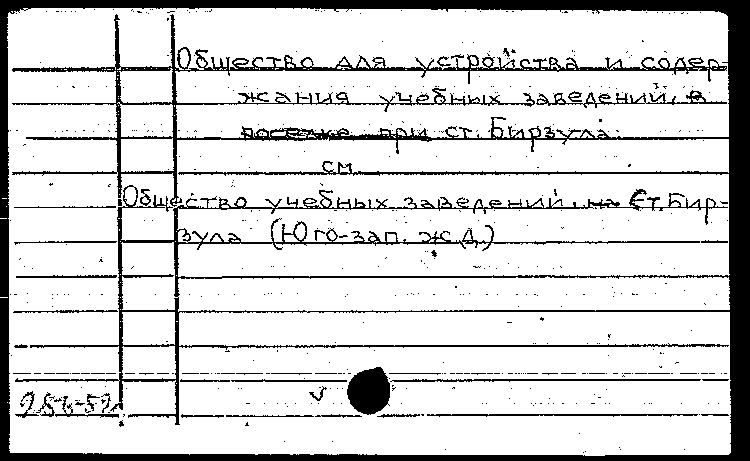 Общество для устройства и содер-
жания учебных заведений, в
поселке при ст. Бирзула.
см.
Общество учебных заведений, на Ст. Бир-
зула (Юго-зап. ж.д.)